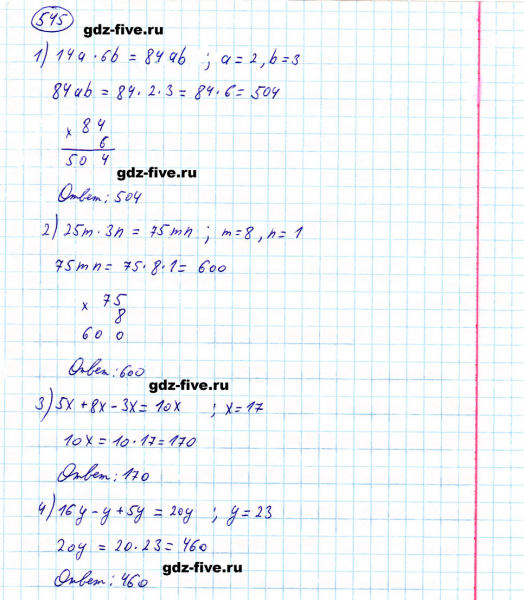 545
gdz-five.ru
1) 14a · 6b = 84ab ; a = 2, b = 3
84ab = 84 · 2 · 3 = 84 · 6 = 504
× 84
6
504
gdz-five.ru
Ответ: 504
2) 25m · 3n = 75mn ; m = 8, n = 1
75mn = 75 · 8 · 1 = 600
× 75
8
600
Ответ: 600
gdz-five.ru
3) 5x + 8x - 3x = 10x ; x = 17
10x = 10 · 17 = 170
Ответ: 170
gdz-five.ru
4) 16y - y + 5y = 20y ; y = 23
20y = 20 · 23 = 460
gdz-five.ru
Ответ: 460